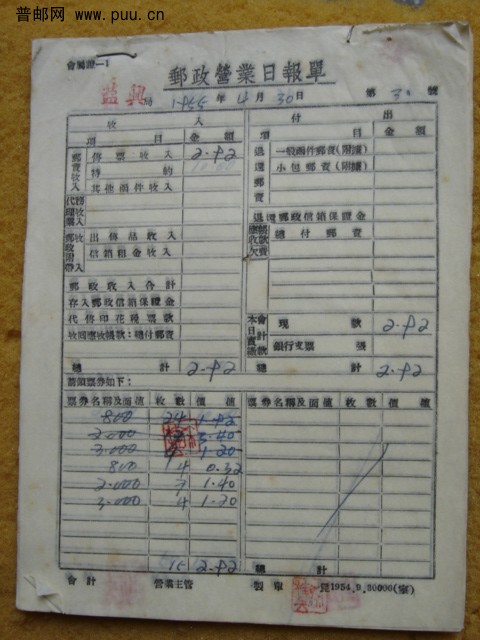 普邮网 www.puu.cn
會屬證-1
郵政營業日報單
益興局 1955年4月30日 第 30 號
收 入 付 出
項 目 金 額 項 目 金 額
郵資收入 售票收入 2.92 退還郵資 一般函件郵資(附據)
特約 小包郵資(附據)
其他函件收入
代辦
退還郵政信箱保證金
出售品收入 總付郵資
信箱租金收入
郵政收入合計
存入郵政信箱保證金
代售印花稅票款 本日會計賣過款 現款 2.92
收回應收攤款:總付郵費 銀行支票 張
總 計 2.92 總 計 2.92
票券名稱及面值 枚數 價值 票券名稱及面值 枚數 價值
800 24 1.92
2.000 3.40
3.000 1.20
800 4 0.32
2.000 7 1.40
3.000 4 1.20
15 2.92 總計
會計 營業主管 製單 1954.9.30000(室)